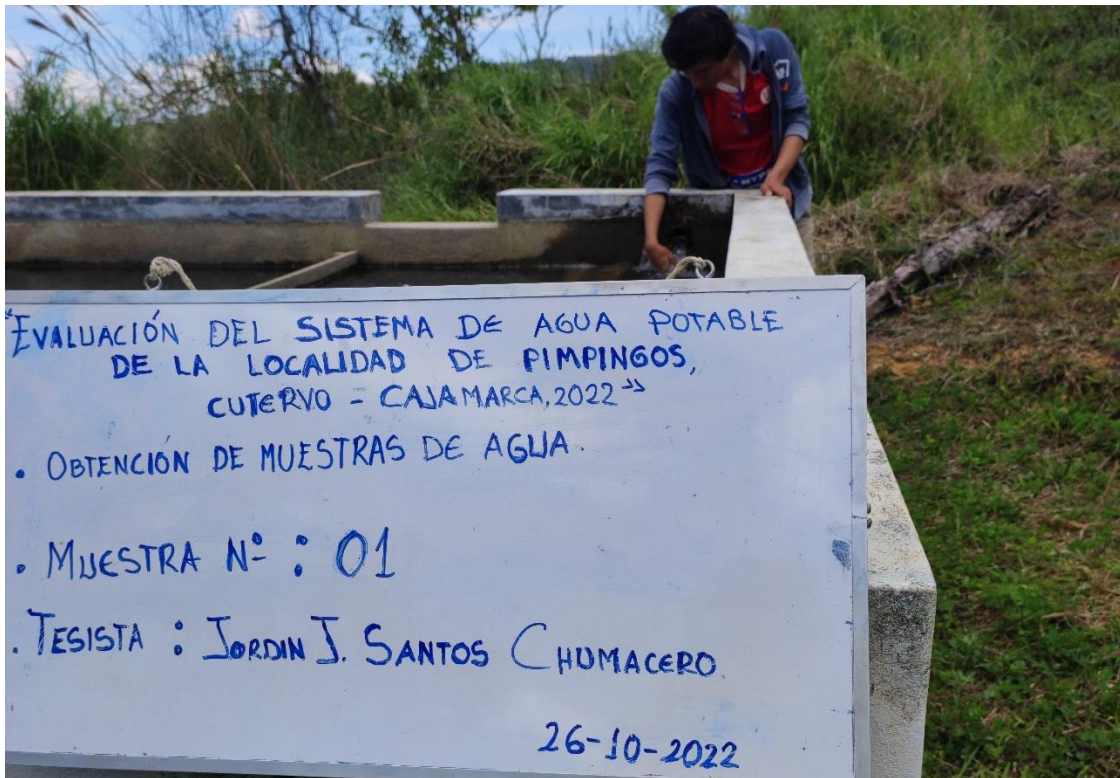 "EVALUACIÓN DEL SISTEMA DE AGUA POTABLE
DE LA LOCALIDAD DE PIMPINGOS,
CUTERVO - CAJAMARCA, 2022"
. OBTENCIÓN DE MUESTRAS DE AGUA.
. MUESTRA Nº : 01
. TESISTA : JORDIN J. SANTOS CHUMACERO
26-10-2022